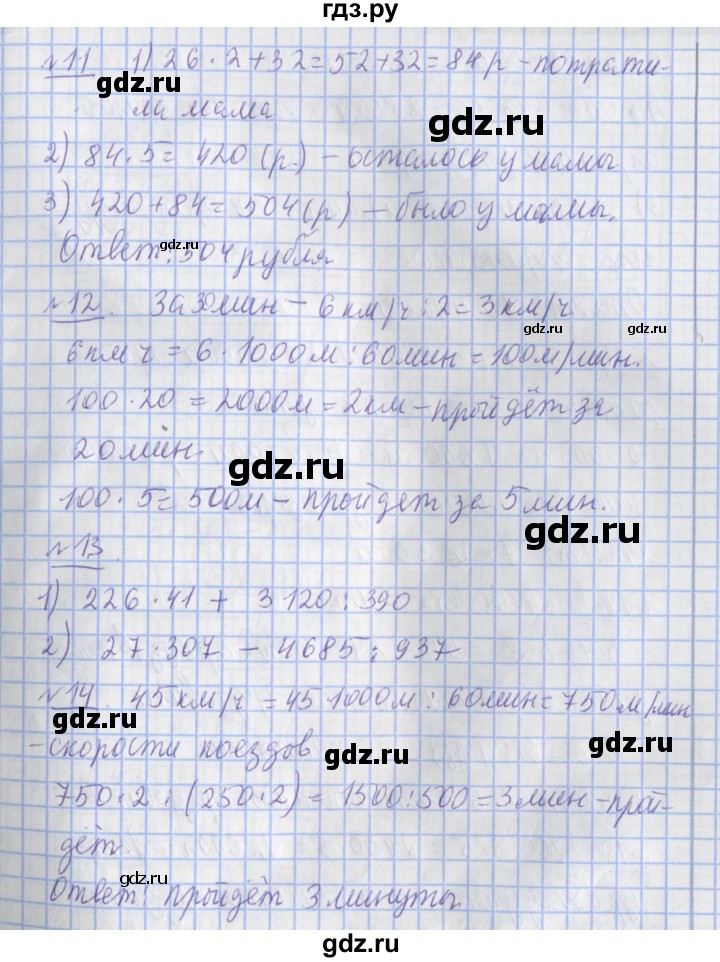 гдз.ру
№11 1) 26 · 2 + 32 = 52 + 32 = 84 р – потрати-
ла мама
2) 84 · 5 = 420 (р.) – осталось у мамы
3) 420 + 84 = 504 (р) – было у мамы.
Ответ: 504 рубля
№12. За 30 мин – 6 км/ч : 2 = 3 км/ч
6 км ч = 6 · 1000 м : 60 мин = 100 м/мин.
100 · 20 = 2000 м = 2 км – пройдёт за
20 мин.
100 · 5 = 500 м – пройдет за 5 мин.
№13.
1) 226 · 41 + 3120 : 390
2) 27 · 307 – 4685 : 937
№14. 45 км/ч = 45 1000 м : 60 мин = 750 м/мин
– скорости поездов
750 · 2 : (250 · 2) = 1500 : 500 = 3 мин – прой-
дёт.
Ответ: пройдёт 3 минуты
gdz.ru
gdz.ru
gdz.ru
gdz.ru
gdz.ru
gdz.ru
gdz.ru
gdz.ru
gdz.ru
gdz.ru
gdz.ru
gdz.ru
gdz.ru